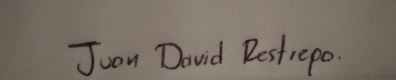 Juan David Restrepo.